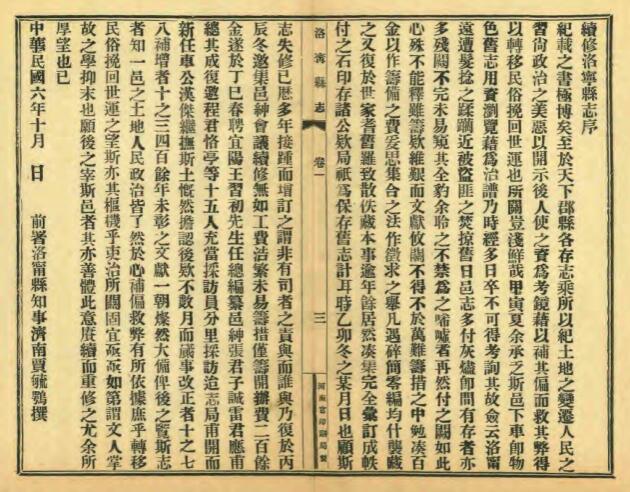 續修洛寧縣志序
紀載之書極博矣至於天下郡縣各存志乘所以紀土地之變遷人民之
習尚政治之美惡以開示後人使之資為考鏡藉以補其偏而救其弊得
以轉移民俗挽回世運也所關豈淺鮮哉甲寅夏余承乏斯邑下車卽物
色舊志用資瀏覽藉為治譜乃時經多日卒不可得考詢其故僉云洛甯
遠遭髮捻之蹂躪近被盜匪之焚掠舊日邑志多付灰燼卽間有存者亦
多殘闕不完未易窺其全豹余聆之不禁為之唏噓者再然付之闕如此
心殊不能釋雖籌欵維艱而文獻攸關不得不於萬難籌措之中勉湊百
金以作籌備之費妥思集合之法作徵求之舉凡遇碎簡零編均什襲藏
之又復於世家耆舊羅致散佚藏本事逾年餘居然湊集完全彙訂成帙
付之石印存諸公欵局祇為保存舊志計耳時乙卯冬之某月日也顧斯
洛寧縣志
卷一
三
河南官印刷局製
志失修已歷多年接踵而增訂之謂非有司者之責與而誰與乃復於丙
辰冬邀集邑紳會議續修無如工費浩繁未易籌措僅籌開辦費二百餘
金遂於丁巳春聘宜陽王習初先生任總編纂邑紳張君子誠雷君應甫
總其成復邀程君恪亭等十五人充當採訪員分里採訪迨志局甫開而
新任車公漢傑繼撫斯土慨然擔認後欵不數月而蕆事改正者十之七
八補增者十之三四百餘年未彰之文獻一朝燦然大備俾後之覽斯志
者知一邑之土地人民政治皆了然於心補偏救弊有所依據庶乎轉移
民俗挽回世運之望斯亦其樞機乎吏治所關固宜亟亟如第謂文人掌
故之學抑末也願後之宰斯邑者其亦善體此意賡續而重修之尤余所
厚望也已
中華民國六年十月　日　前署洛甯縣知事濟南賈毓鶚撰